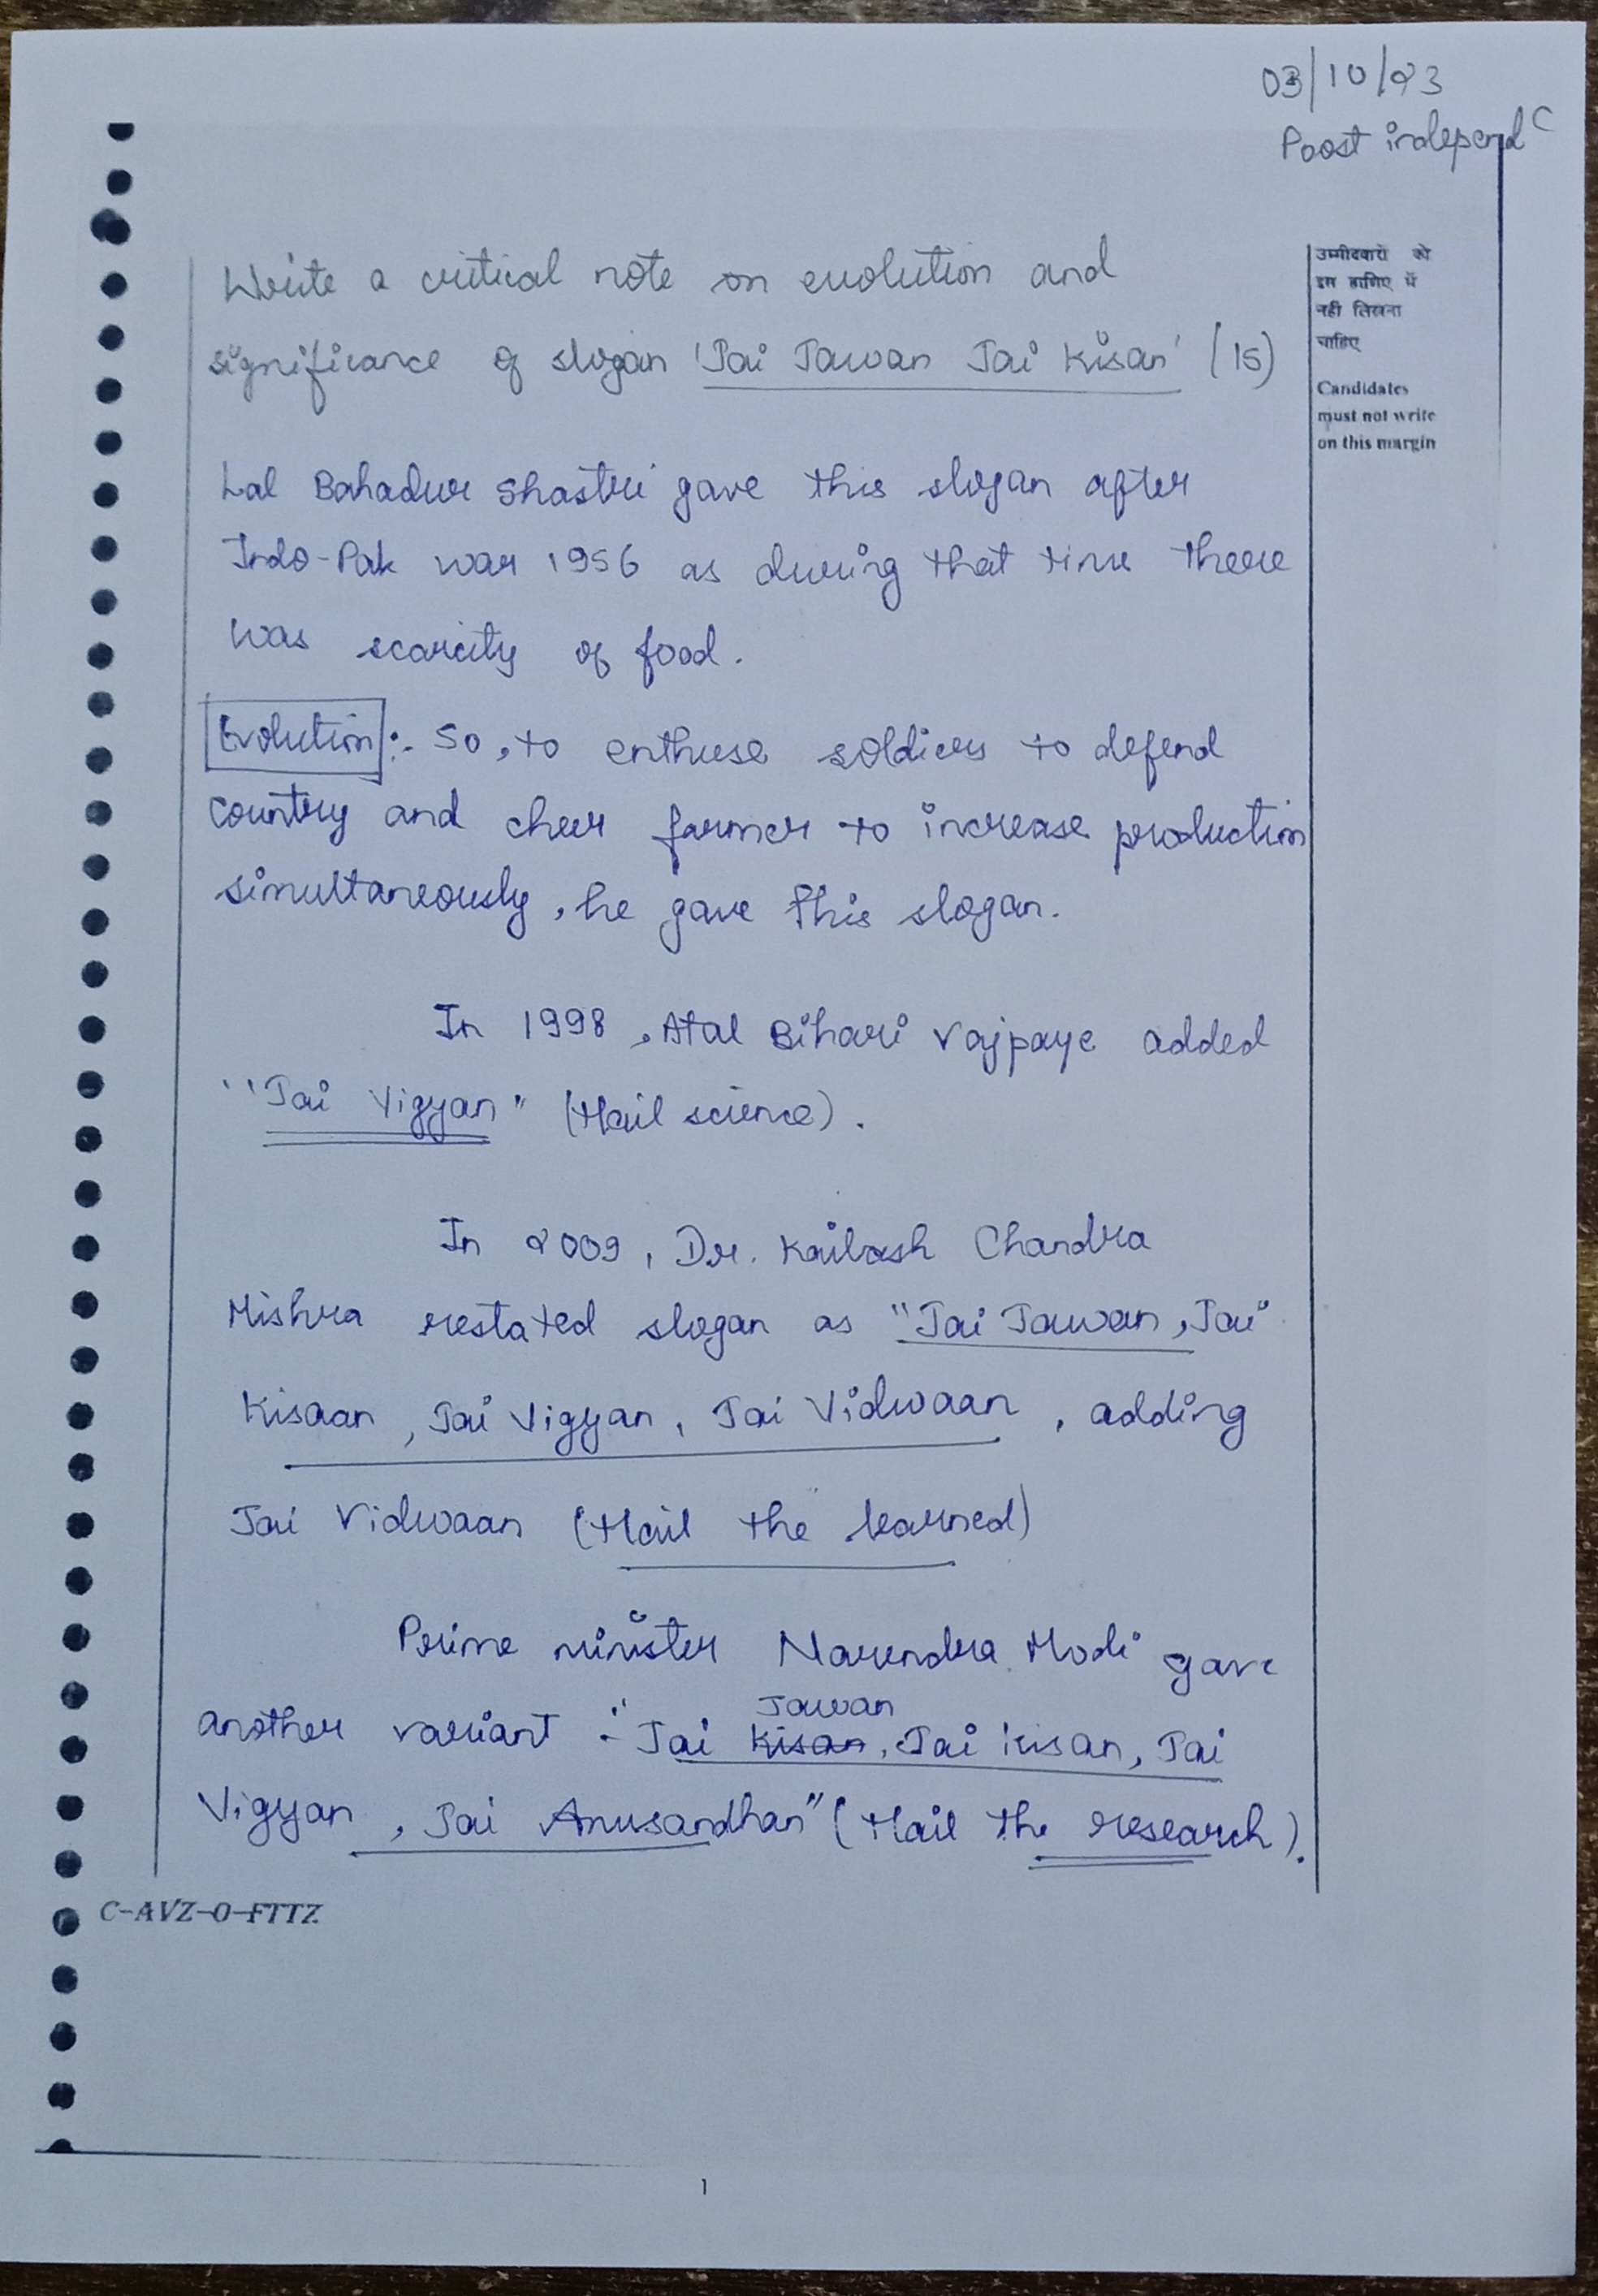 03/10/23
Poost independ c
Write a critical note on evolution and
significance of slogan 'Jai Jawan Jai Kisan' (15)
उम्मीदवारों को
इस हाशिए में
नहीं लिखना
चाहिए
Candidates
must not write
on this margin
Lal Bahadur Shastri gave this slogan after
Indo-Pak war 1956 as during that time there
was scarcity of food.
Evolution :- So, to enthuse soldiers to defend
country and cheer farmer to increase production
simultaneously, he gave this slogan.
In 1998, Atal Bihari Vajpaye added
"Jai Vigyan" (Hail science).
In 2009, Dr. Kailash Chandra
Mishra restated slogan as "Jai Jawan, Jai
Kisaan, Jai Vigyan, Jai Vidwaan, adding
Jai Vidwaan (Hail the learned)
Prime minister Narendra Modi gave
Jawan
another variant :- "Jai Kisan, Jai Kisan, Jai
Vigyan, Jai Anusandhan" (Hail the research).
C-AVZ-O-FTTZ
1